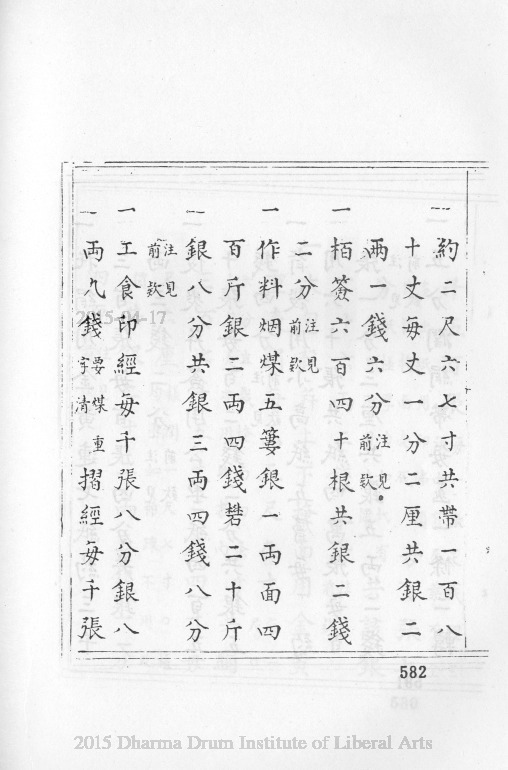 一約二尺六七寸共帶一百八
十丈每丈一分二厘共銀二
兩一錢六分注見前款
一栢簽六百四十根共銀二錢
二分注見前款
一作料烟煤五簍銀一両面四
百斤銀二両四錢礬二十斤
一銀八分共銀三両四錢八分
注見前款
一工食印經每千張八分銀八
一両九錢要煤重字清摺經每千張
582
2015-04-17
2015 Dharma Drum Institute of Liberal Arts